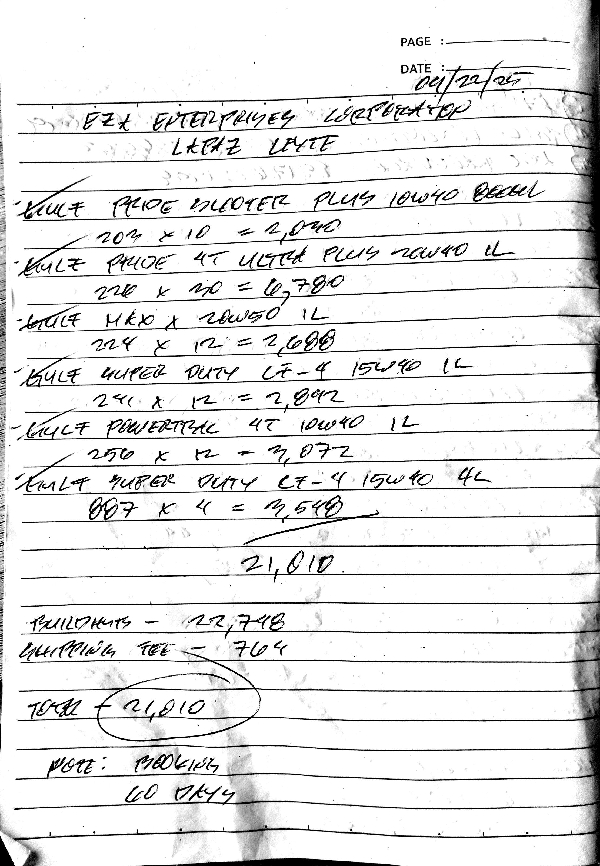 PAGE :
DATE : 04/22/25
EZA ENTERPRISES CORPORATION
LAPAZ LEYTE
GULF PRIDE SCOOTER PLUS 10W40 800ML
203 x 10 = 2,030
GULF PRIDE 4T ULTRA PLUS 20W40 1L
226 x 30 = 6,780
GULF MAX X 20W50 1L
224 x 12 = 2,688
GULF SUPER DUTY CF-4 15W40 1L
241 x 12 = 2,892
GULF POWERTRAC 4T 10W40 1L
256 x 12 = 3,072
GULF SUPER DUTY CF-4 15W40 4L
887 x 4 = 3,548
21,010
- 22,748
SHIPPING FEE - 764
TOTAL - 21,010
NOTE: BOOKING
60 DAYS